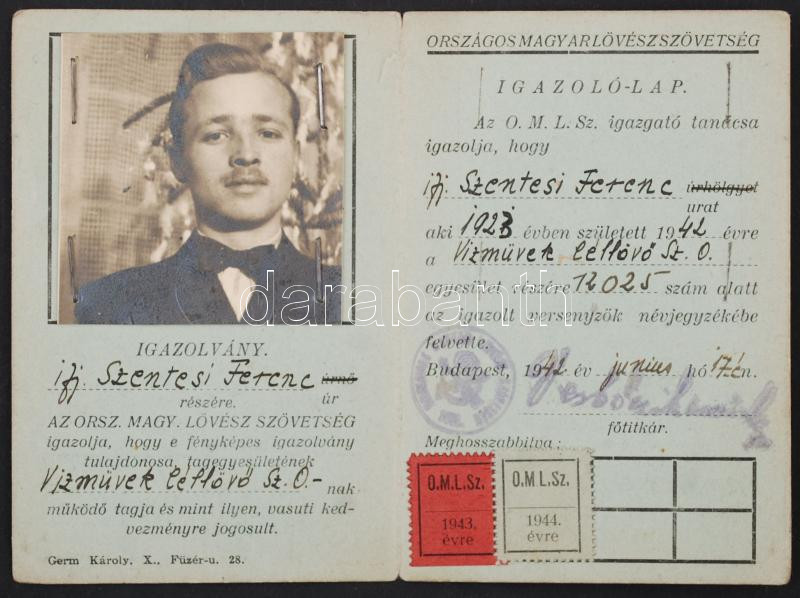 IGAZOLVÁNY.
ifj. Szentesi Ferenc úrnő
részére. úr
AZ ORSZ. MAGY. LÖVÉSZ SZÖVETSÉG
igazolja, hogy e fényképes igazolvány
tulajdonosa, tagegyesületének
Vizművek Céllövő Sz. O.- nak
működő tagja és mint ilyen, vasuti ked-
vezményre jogosult.
Germ Károly, X., Füzér-u. 28.
ORSZÁGOS MAGYAR LÖVÉSZSZÖVETSÉG
IGAZOLÓ-LAP.
Az O. M. L. Sz. igazgató tanácsa
igazolja, hogy
ifj Szentesi Ferenc úrhölgyet
urat
aki 1923 évben született 1942 évre
a Vizművek Céllövő Sz. O.
egyesület részére 12025 szám alatt
az igazolt versenyzők névjegyzékébe
felvette.
Budapest, 1942 év junius hó 17én.
főtitkár.
Meghosszabbitva:
O.M.L.Sz.
1943.
évre
O.M.L.Sz.
1944.
évre
darabanth